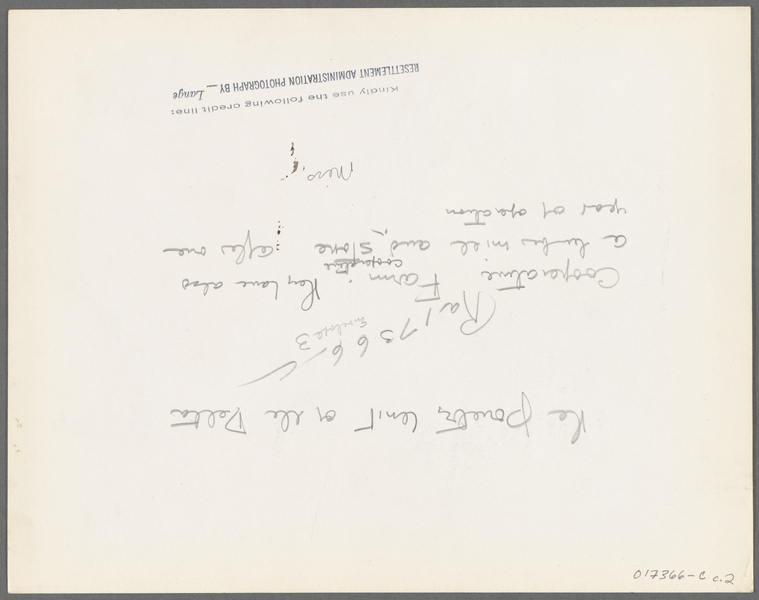 The poultry unit of the Delta
Ra 17366-C
Envelope 3
Cooperative Farm. They have also
cooperative
a lumber mill and, store after one
year of operation
Miss.
Kindly use the following credit line:
RESETTLEMENT ADMINISTRATION PHOTOGRAPH BY — Lange
017366-C c.2